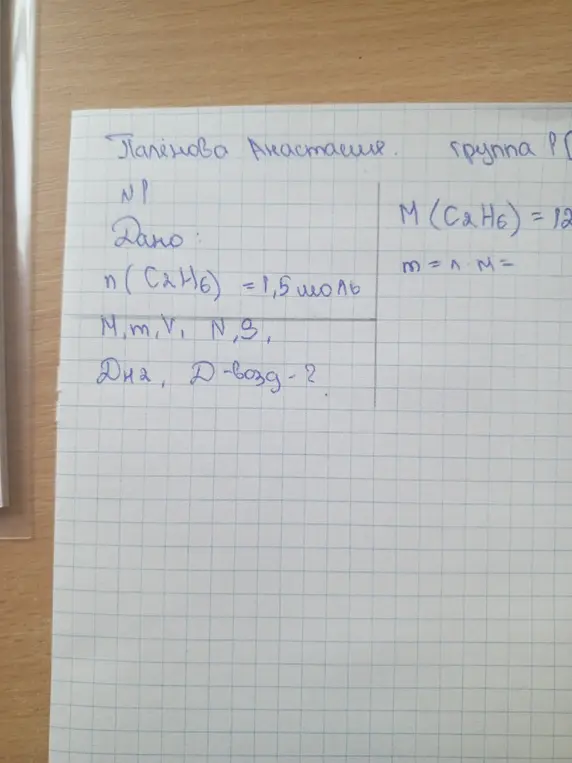 Палёнова Анастасия. группа 1
N1
Дано:
n(C2H6) = 1,5 моль
M, m, V, N, g,
Dн2, D-возд-?
M(C2H6) = 12
m = n · M =